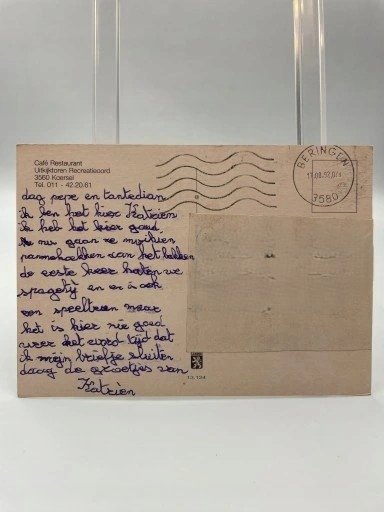 Café Restaurant
Uitkijktoren Recreatieoord
3560 Koersel
Tel. 011 - 42.20.61
BERINGEN
3580
dag pepe en tantedian
ik ben het hier Katrien
ik heb het hier goed
nu gaan we
pannekoeken van het bakken
de eeste keer haten we
spagetij en er is ook
een speeltuin maar
het is hier nie goed
weer het word tijd dat
ik mijn briefje sluiten
daag de groetjes van
Katrien
13.124